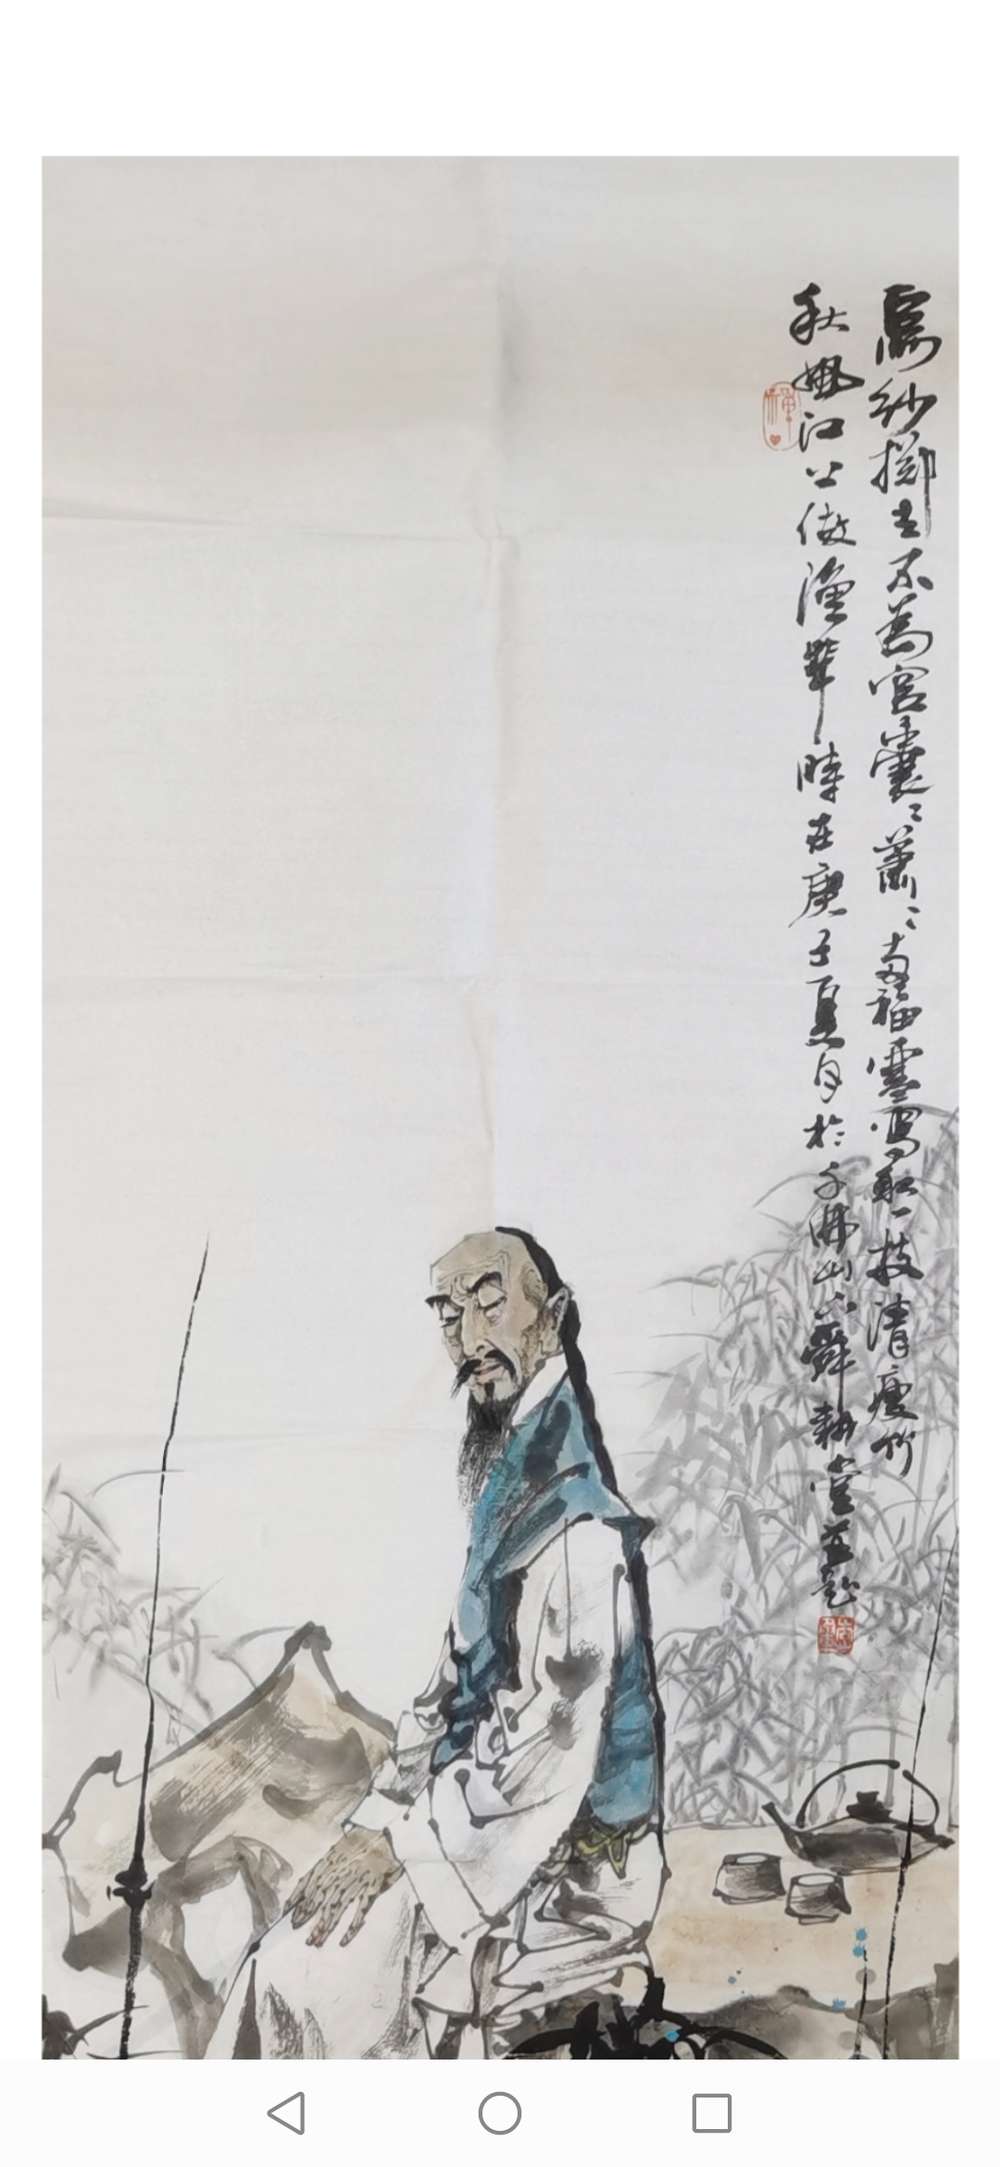 烏紗擲去不為官囊〻蕭〻兩袖寒寫取一枝清瘦竹
秋風江上做漁竿時在庚子夏月於千佛山下舜耕堂並題
禪